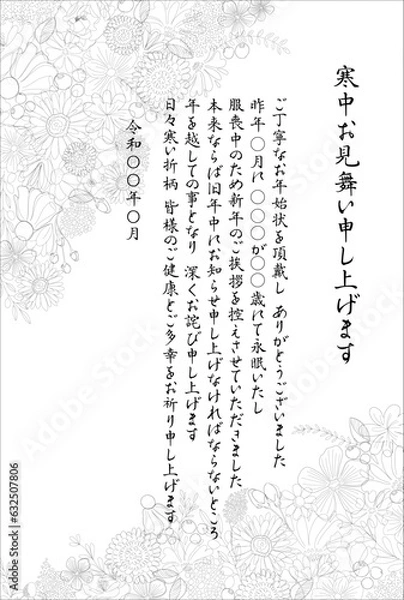 寒中お見舞い申し上げます
ご丁寧なお年始状を頂戴し ありがとうございました
昨年〇月に 〇〇〇が〇〇歳にて永眠いたし
服喪中のため新年のご挨拶を控えさせていただきました
本来ならば旧年中にお知らせ申し上げなければならないところ
年を越しての事となり 深くお詫び申し上げます
日々寒い折柄 皆様のご健康とご多幸をお祈り申し上げます
令和〇〇年〇月
Adobe Stock | #632507806